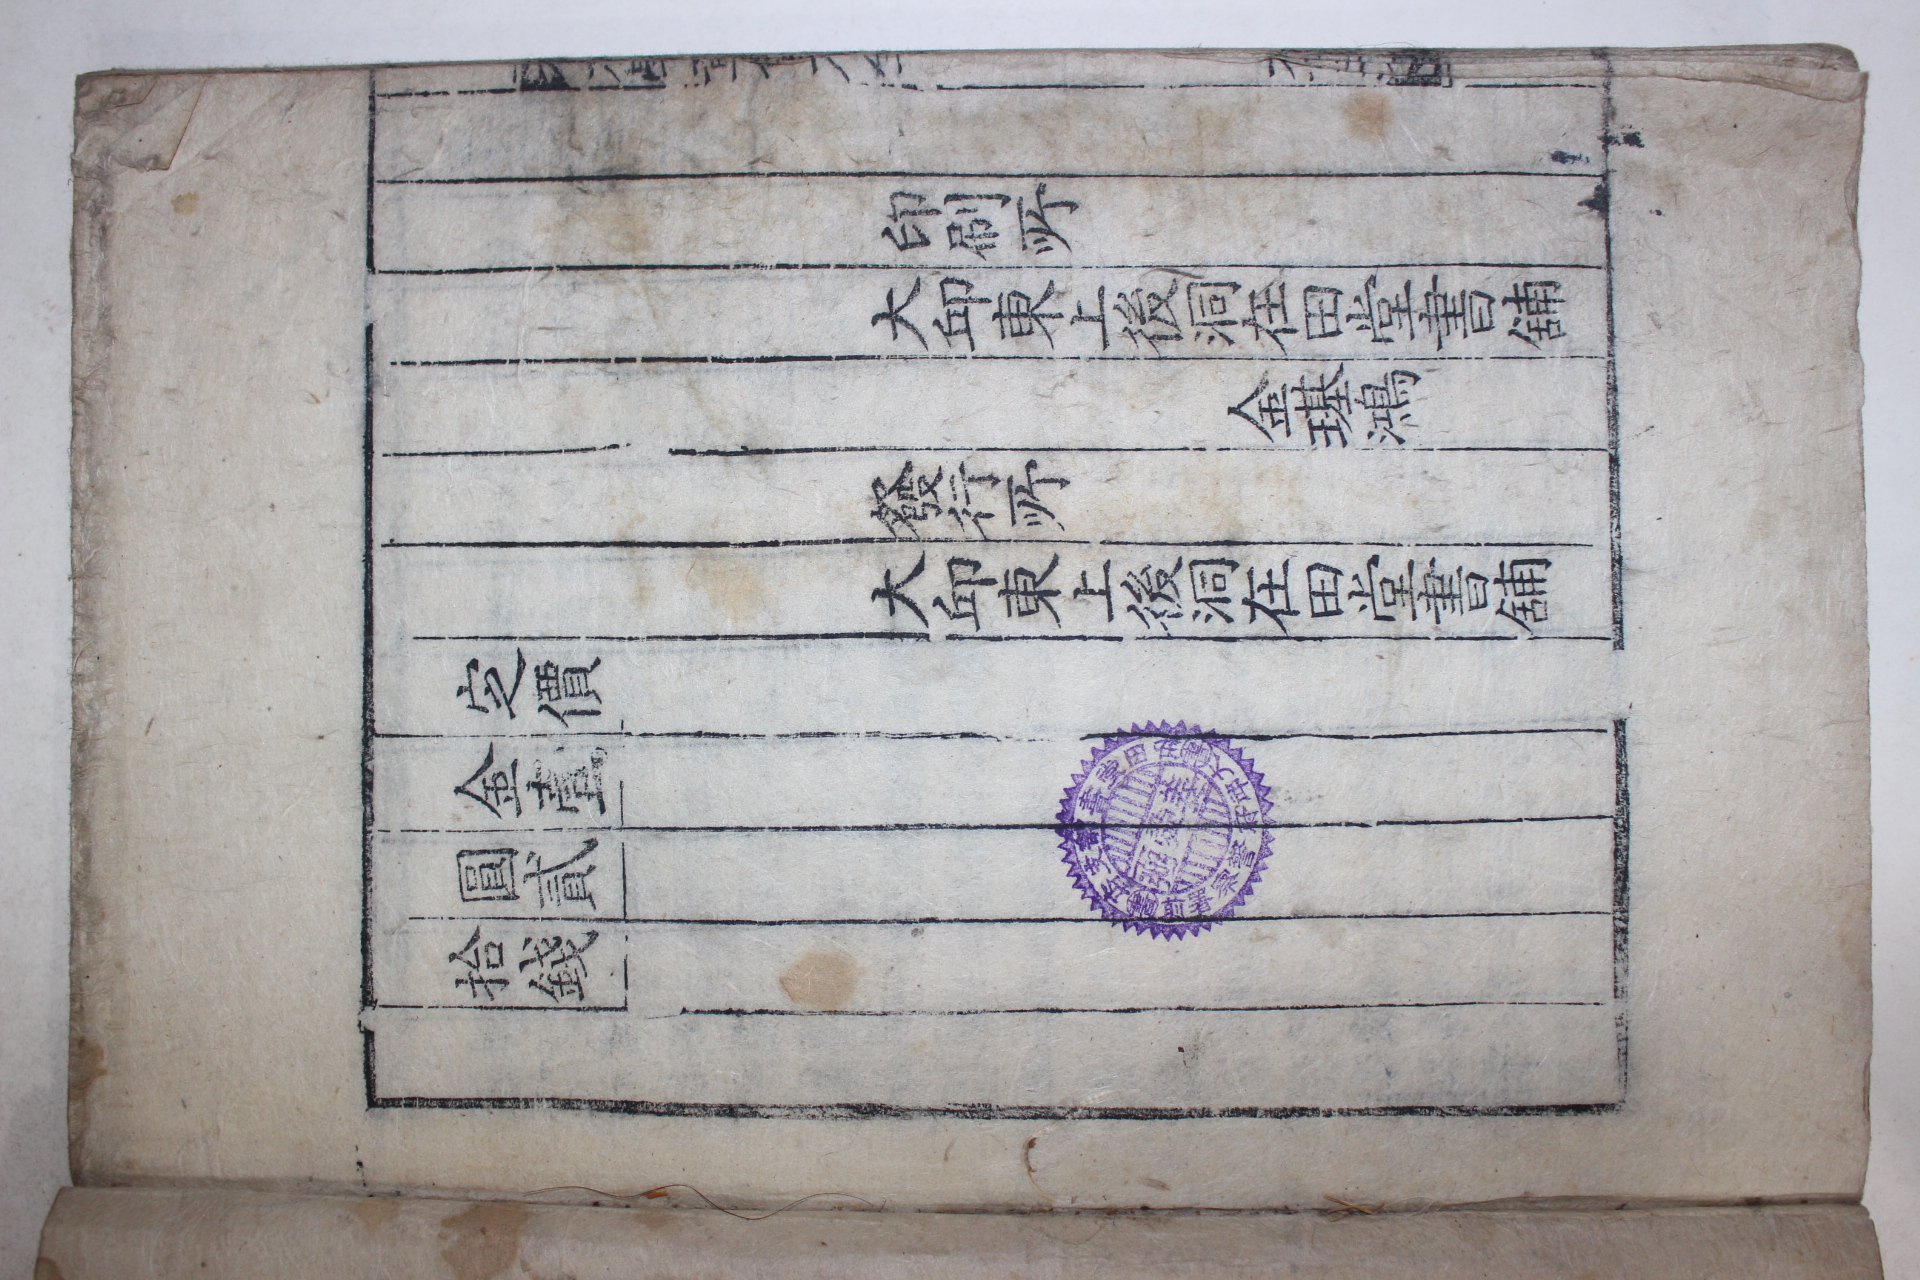 印刷所
大邱東上後洞在田堂書鋪
金璂鴻
發行所
大邱東上後洞在田堂書鋪
定價
金壹
圓貳
拾錢